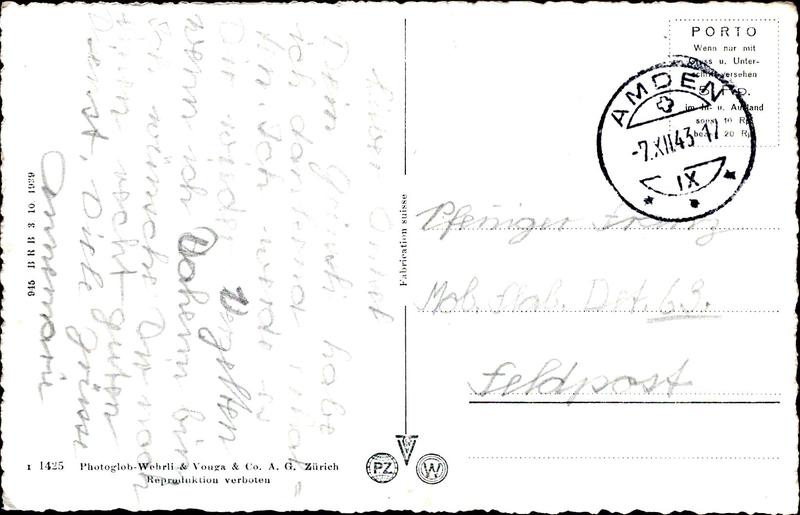 Lieber Onkel
Dein Grüsli habe
ich dankend erhal-
ten. Ich werde es
Dir wieder Vergelten
wenn ich Daheim bin
Ich wünsche Dir noch
einen recht guten
Dienst. Viele Grüsse
Annemarie
945 B R B 3 10 1939
1 1425 Photoglob-Wehrli & Vouga & Co. A. G. Zürich
Reproduktion verboten
Fabrication suisse
PZ W
PORTO
Wenn nur mit
Gruss u. Unter-
schrift versehen
5 Rp.
im In- u. Ausland
sonst 10 Rp.
bezw. 20 Rp.
AMDEN
-7.XII.43-17
IX
Pfeniger Franz
Mob. Stab. Det. 63.
Feldpost